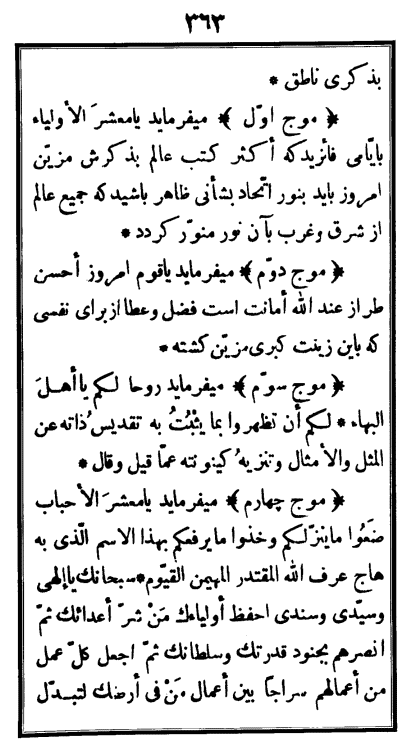 ٣٦٣
بذکری ناطق *
﴿ موج اوّل ﴾ میفرماید یامعشرَ الأولیاء
بایّامی فائزیدکه أکثر کتب عالم بذکرش مزیّن
امروز باید بنور اتّحاد بشأنی ظاهر باشیدکه جمیع عالم
از شرق وغرب بآن نور منوّر کردد *
﴿ موج دوّم ﴾ میفرماید یاقوم امروز أحسن
طراز عند الله أمانت است فضل وعطا ازبرای نفسی
که باین زینت کبری مزیّن کشته *
﴿ موج سوّم ﴾ میفرماید روحا لکم یاأهلَ
البهاء * لکم أن تظهروا بما یثبُتُ به تقدیسُ ذاته عن
المثل والأمثال وتنزیهُ کینونته عمّا قیل وقال *
﴿ موج چهارم ﴾ میفرماید یامعشرَ الأحباب
ضَعُوا ماینزّلکم وخذوا مایرفعکم بهذا الاسم الّذی به
هاج عرف الله المقتدر المهیمن القیّوم * سبحانك یاإلهی
وسیّدی وسندی احفظ أولیاءك مَنْ شرّ أعدائك ثمّ
انصرهم بجنود قدرتك وسلطانك ثمّ اجعل کلّ عمل
من أعمالهم سراجًا بین أعمال مَنْ فی أرضك لتبدّل